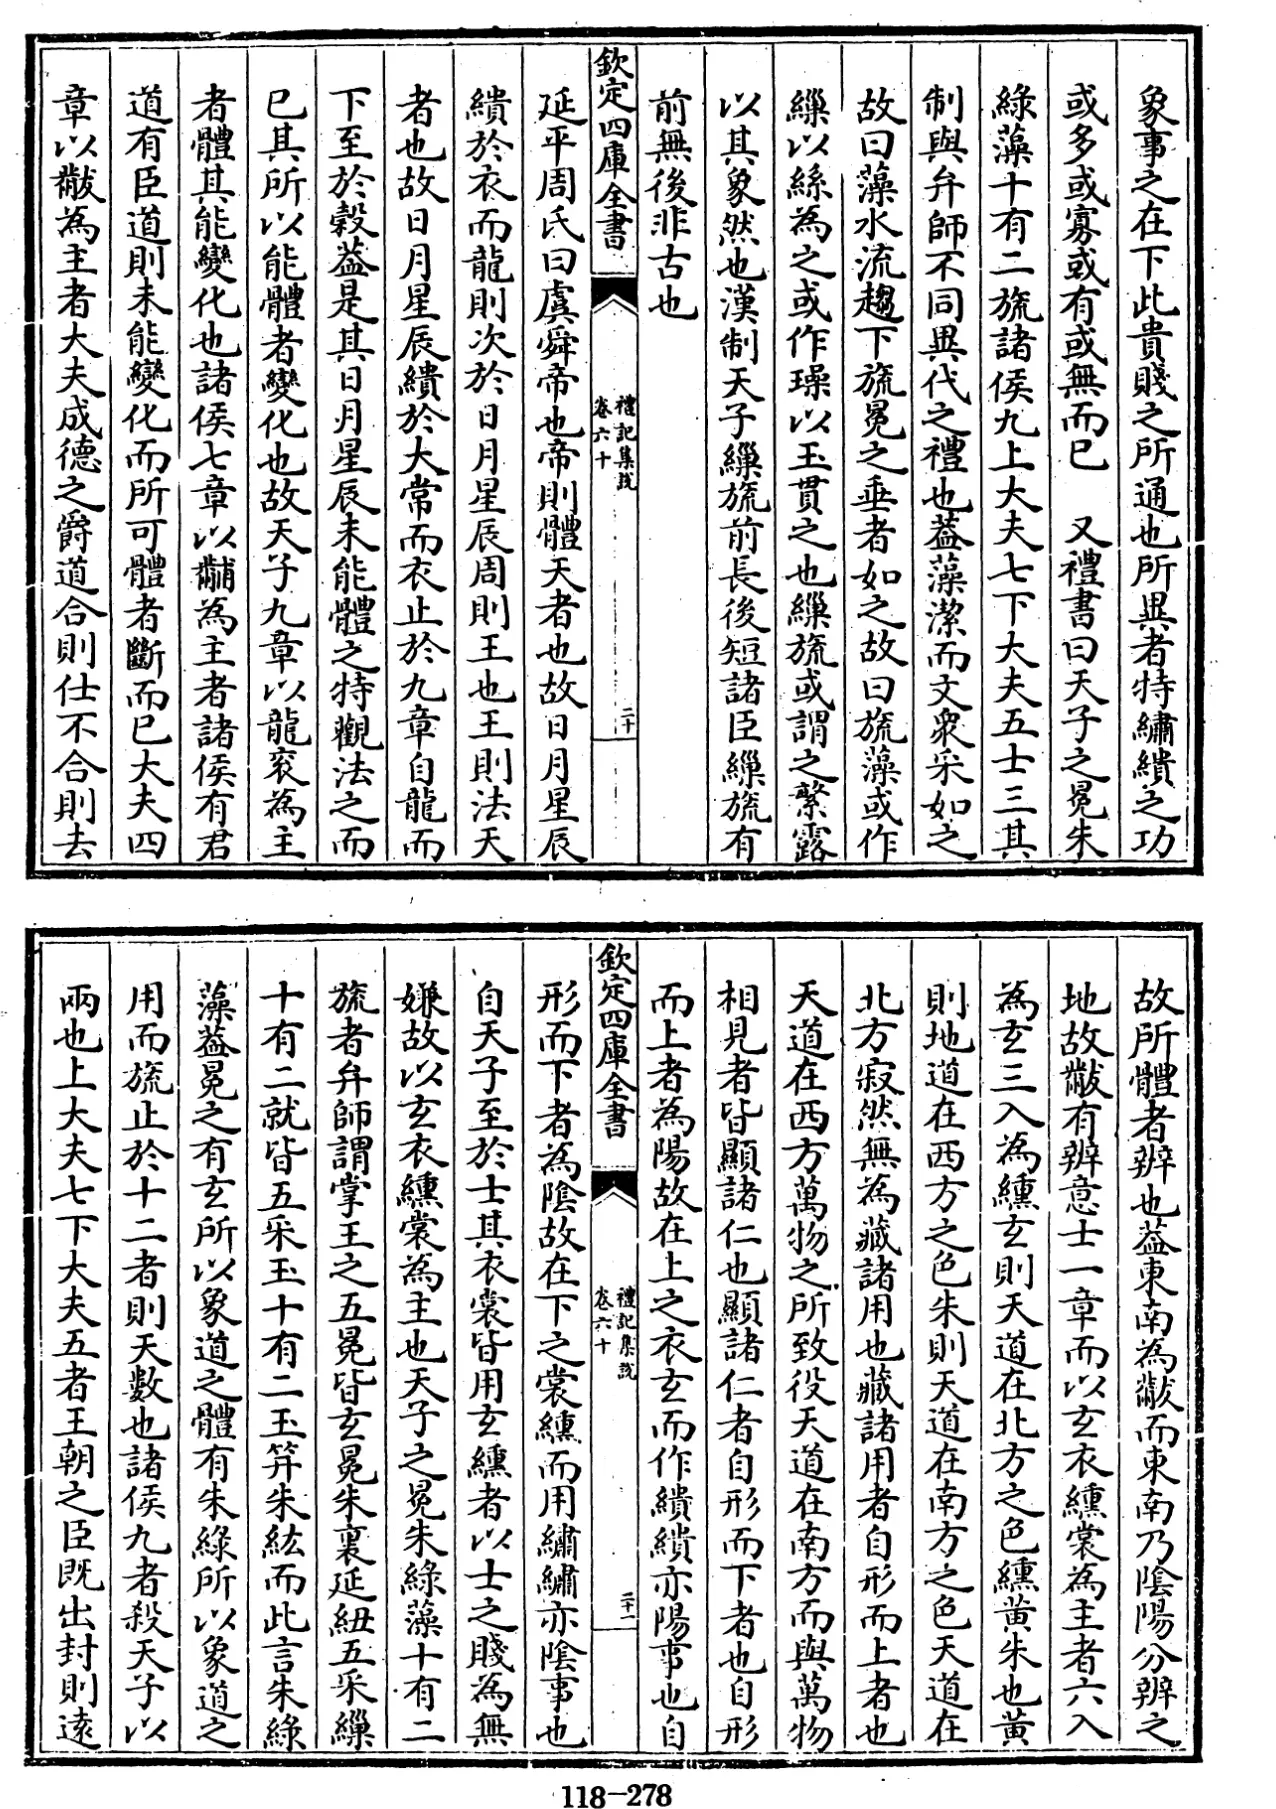 象事之在下此貴賤之所通也所異者特繡繢之功
或多或寡或有或無而已　又禮書曰天子之冕朱
綠藻十有二旒諸侯九上大夫七下大夫五士三其
制與弁師不同異代之禮也葢藻潔而文衆采如之
故曰藻水流趨下旒冕之垂者如之故曰旒藻或作
繅以絲為之或作璪以玉貫之也繅旒或謂之繁露
以其象然也漢制天子繅旒前長後短諸臣繅旒有
前無後非古也
欽定四庫全書
禮記集説
卷六十
二十
延平周氏曰虞舜帝也帝則體天者也故日月星辰
繢於衣而龍則次於日月星辰周則王也王則法天
者也故日月星辰繢於大常而衣止於九章自龍而
下至於縠葢是其日月星辰未能體之特觀法之而
已其所以能體者變化也故天子九章以龍衮為主
者體其能變化也諸侯七章以黼為主者諸侯有君
道有臣道則未能變化而所可體者斷而已大夫四
章以黻為主者大夫成德之爵道合則仕不合則去
故所體者辨也葢東南為黻而東南乃陰陽分辨之
地故黻有辨意士一章而以玄衣纁裳為主者六入
為玄三入為纁玄則天道在北方之色纁黃朱也黃
則地道在西方之色朱則天道在南方之色天道在
北方寂然無為藏諸用也藏諸用者自形而上者也
天道在西方萬物之所致役天道在南方而與萬物
相見者皆顯諸仁也顯諸仁者自形而下者也自形
而上者為陽故在上之衣玄而作繢繢亦陽事也自
欽定四庫全書
禮記集説
卷六十
二十一
形而下者為陰故在下之裳纁而用繡繡亦陰事也
自天子至於士其衣裳皆用玄纁者以士之賤為無
嫌故以玄衣纁裳為主也天子之冕朱綠藻十有二
旒者弁師謂掌王之五冕皆玄冕朱裏延紐五采繅
十有二就皆五采玉十有二玉笄朱紘而此言朱綠
藻葢冕之有玄所以象道之體有朱綠所以象道之
用而旒止於十二者則天數也諸侯九者殺天子以
兩也上大夫七下大夫五者王朝之臣既出封則逺
118-278